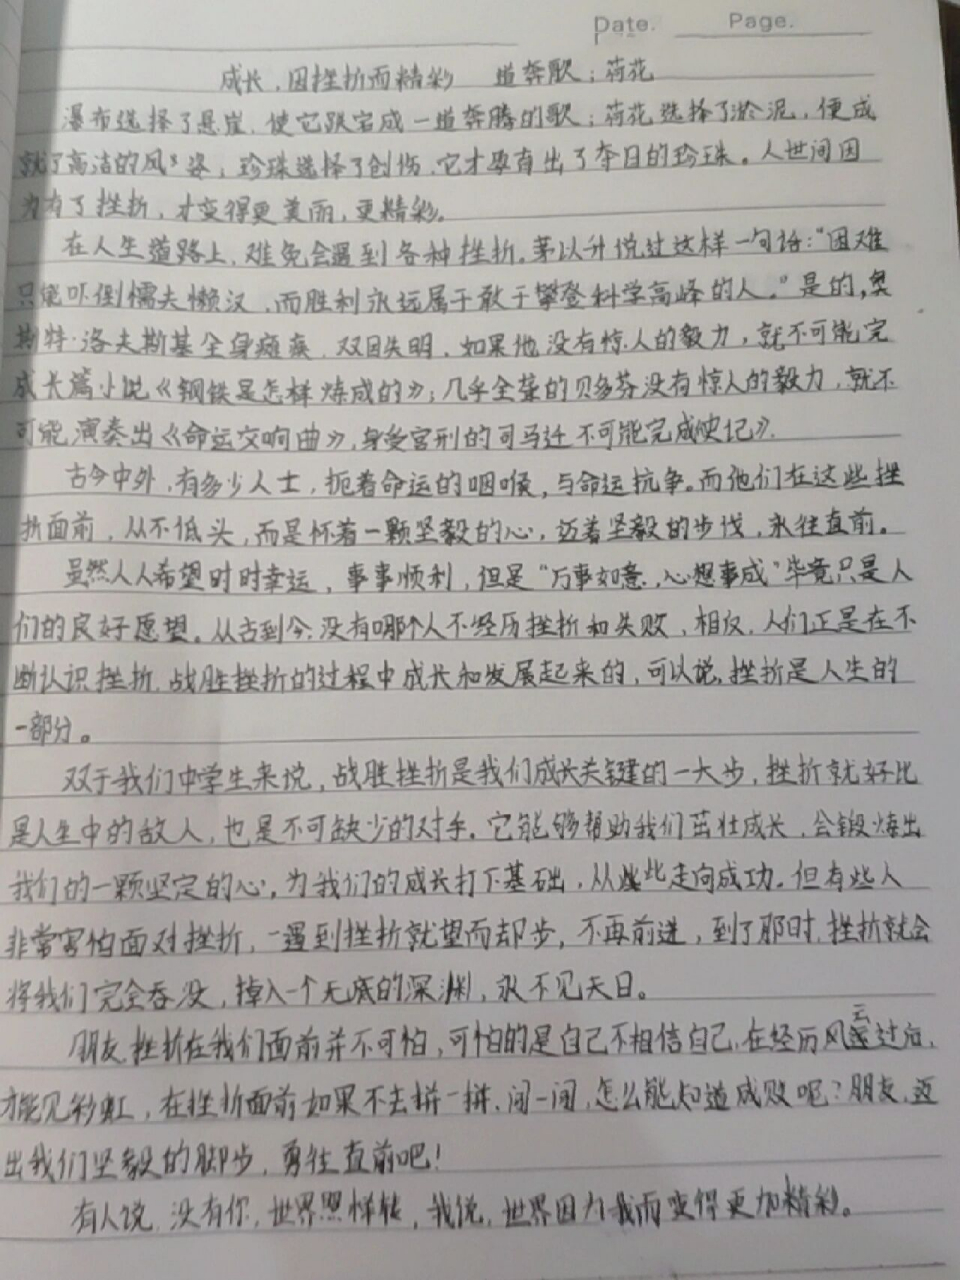 Date. Page.
成长,因挫折而精彩 道奔歌;荷花
瀑布选择了悬崖,使它跌宕成一道奔腾的歌;荷花选择了淤泥,便成
就了高洁的风姿;珍珠选择了创伤,它才孕育出了夺目的珍珠。人世间因
为有了挫折,才变得更美丽,更精彩。
在人生道路上,难免会遇到各种挫折。茅以升说过这样一句话:“困难
只能吓倒懦夫懒汉,而胜利永远属于敢于攀登科学高峰的人。”是的,奥
斯特·洛夫斯基全身瘫痪,双目失明,如果他没有惊人的毅力,就不可能完
成长篇小说《钢铁是怎样炼成的》;几乎全聋的贝多芬没有惊人的毅力,就不
可能演奏出《命运交响曲》,身受宫刑的司马迁不可能完成《史记》。
古今中外,有多少人士,扼着命运的咽喉,与命运抗争。而他们在这些挫
折面前,从不低头,而是怀着一颗坚毅的心,迈着坚毅的步伐,永往直前。
虽然人人希望时时幸运,事事顺利,但是“万事如意,心想事成”毕竟只是人
们的良好愿望。从古到今,没有哪个人不经历挫折和失败,相反,人们正是在不
断认识挫折,战胜挫折的过程中成长和发展起来的,可以说,挫折是人生的
一部分。
双于我们中学生来说,战胜挫折是我们成长关键的一大步,挫折就好比
是人生中的敌人,也是不可缺少的对手。它能够帮助我们茁壮成长,会锻炼出
我们的一颗坚定的心,为我们的成长打下基础,从此走向成功。但有些人
非常害怕面对挫折,一遇到挫折就望而却步,不再前进,到了那时,挫折就会
将我们完全吞没,掉入一个无底的深渊,永不见天日。
朋友,挫折在我们面前并不可怕,可怕的是自己不相信自己,在经历风云过后,
才能见彩虹,在挫折面前如果不去拼一拼,闯一闯,怎么能知道成败呢?朋友,迈
出我们坚毅的脚步,勇往直前吧!
有人说,没有你,世界照样转,我说,世界因为我而变得更加精彩。